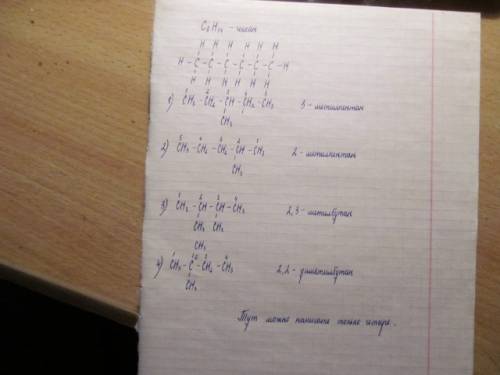 C₆H₁₄ - гексан
H H H H H H
H - C - C - C - C - C - C - H
H H H H H H
1) CH₃ - CH₂ - CH - CH₂ - CH₃ 3 - метилпентан
CH₃
2) CH₃ - CH₂ - CH₂ - CH - CH₃ 2 - метилпентан
CH₃
3) CH₃ - CH - CH - CH₃ 2,3 - метилбутан
CH₃ CH₃
CH₃
4) CH₃ - C - CH₂ - CH₃ 2,2 - диметилбутан
CH₃
Тут можно написать только четыре.